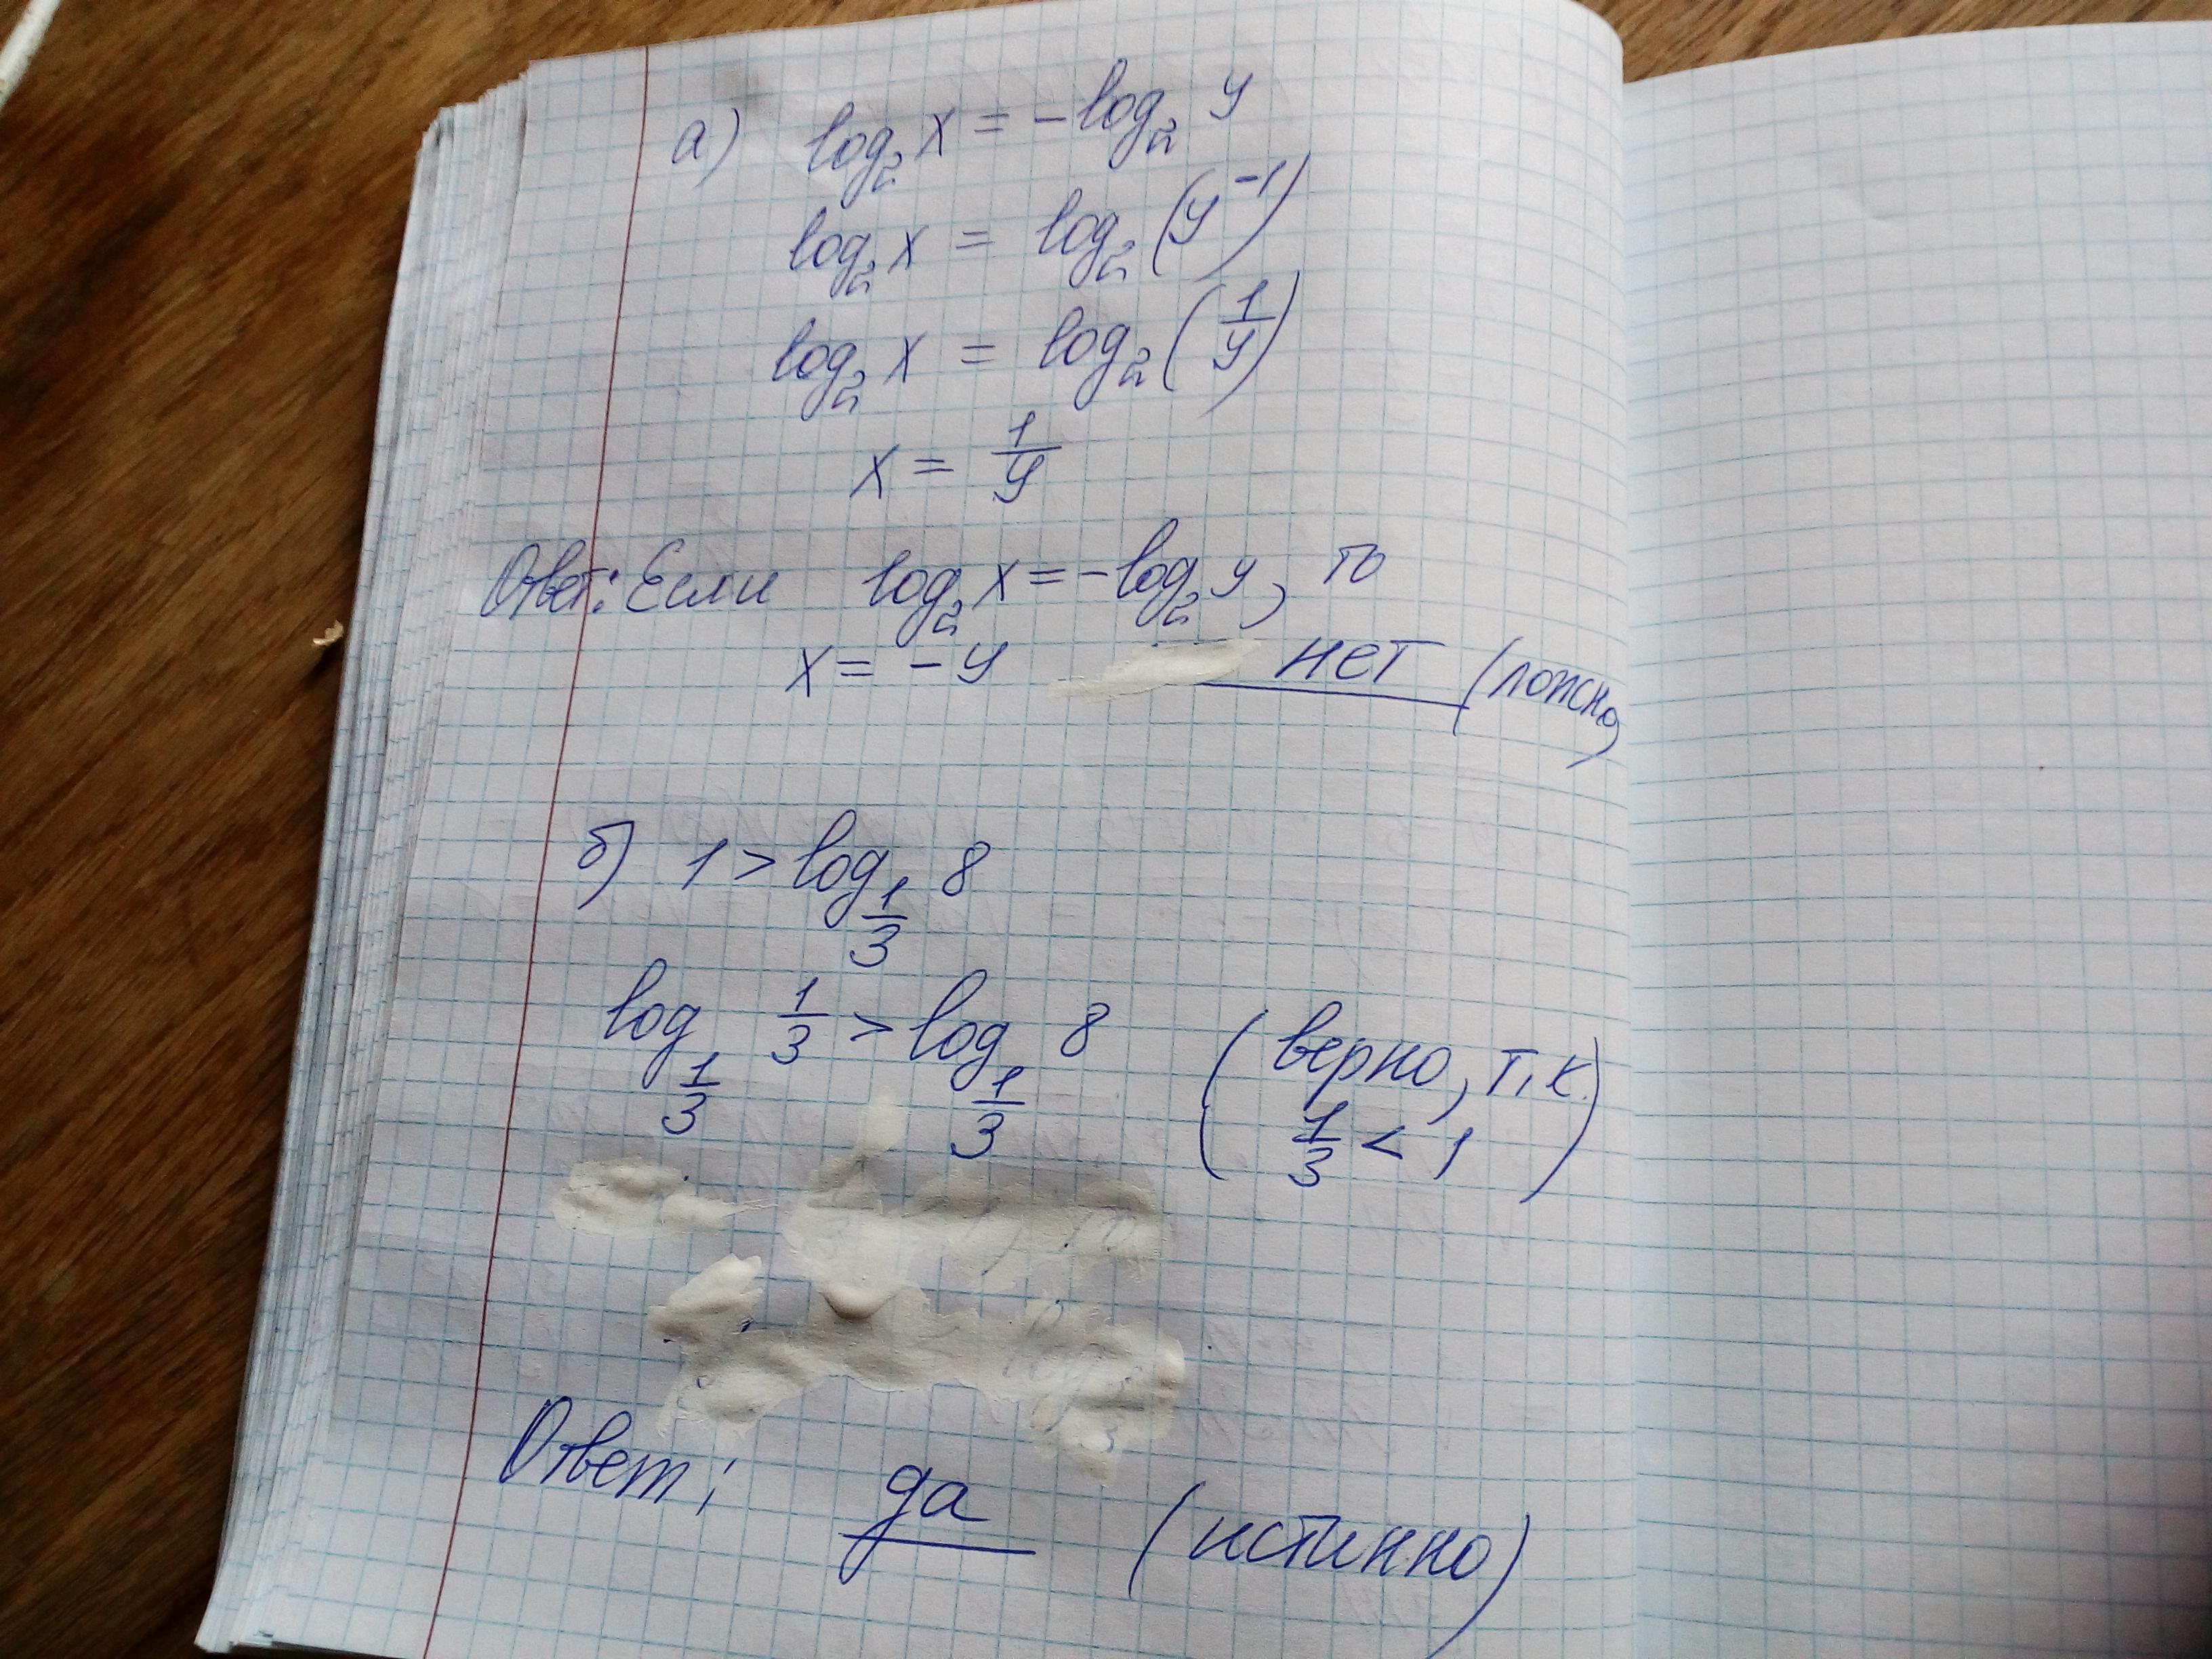 а) log₂ x = -log₂ y
log₂ x = log₂ (y⁻¹)
log₂ x = log₂ (1/y)
x = 1/y
Ответ: Если log₂ x = -log₂ y, то
x = -y нет (ложно)
б) 1 > log_{1/3} 8
log_{1/3} 1/3 > log_{1/3} 8 (верно, т.к. 1/3 < 1)
Ответ: да (истинно)